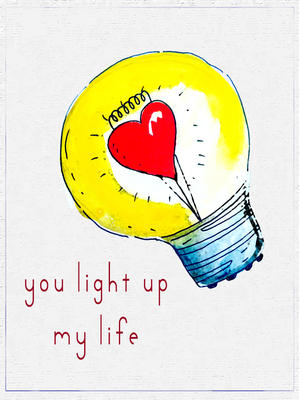 you light up
my life